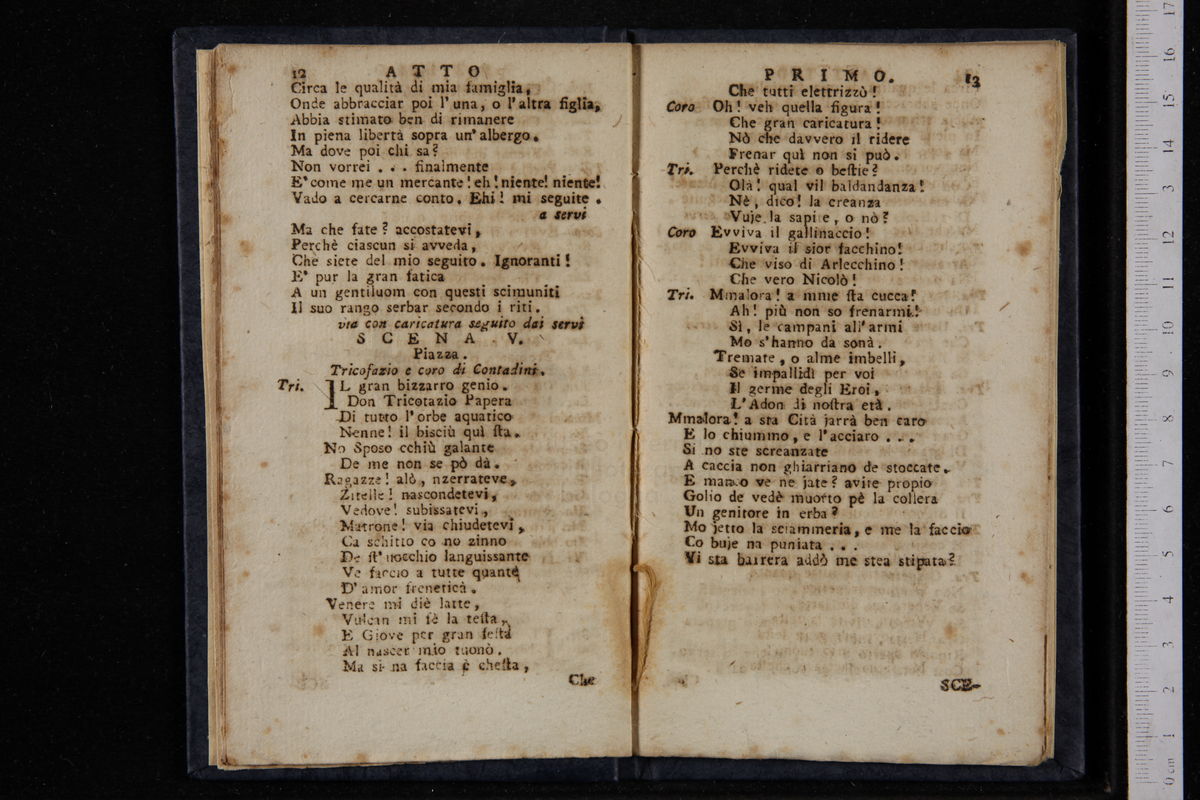 12 ATTO
Circa le qualità di mia famiglia,
Onde abbracciar poi l'una, o l'altra figlia,
Abbia stimato ben di rimanere
In piena libertà sopra un'albergo.
Ma dove poi chi sa?
Non vorrei . . . finalmente
E' come me un mercante! eh! niente! niente!
Vado a cercarne conto. Ehi! mi seguite.
a servi
Ma che fate? accostatevi,
Perchè ciascun si avveda,
Che siete del mio seguito. Ignoranti!
E' pur la gran fatica
A un gentiluom con questi scimuniti
Il suo rango serbar secondo i riti.
via con caricatura seguito dai servi
SCENA V.
Piazza.
Tricofazio e coro di Contadini.
Tri. IL gran bizzarro genio.
Don Tricofazio Papera
Di tutto l'orbe aquatico
Nenne! il bisciù quì sta.
No Sposo cchiù galante
De me non se pò dà.
Ragazze! alò, nzerrateve,
Zitelle! nascondetevi,
Vedove! subissatevi,
Matrone! via chiudetevi,
Ca schitto co no zinno
De st'uocchio languissante
Ve faccio a tutte quante
D'amor freneticà.
Venere mi diè latte,
Vulcan mi fè la testa,
E Giove per gran festa
Al nascer mio tuonò.
Ma si na faccia è chesta,
Che
PRIMO. 13
Che tutti elettrizzò!
Coro Oh! veh quella figura!
Che gran caricatura!
Nò che davvero il ridere
Frenar quì non si può.
Tri. Perchè ridete o bestie?
Olà! qual vil baldandanza!
Nè, dico! la creanza
Vuje la sapite, o nò?
Coro Evviva il gallinaccio!
Evviva il sior facchino!
Che viso di Arlecchino!
Che vero Nicolò!
Tri. Mmalora! a mme sta cucca!
Ah! più non so frenarmi!
Sì, le campani all'armi
Mo s'hanno da sonà.
Tremate, o alme imbelli,
Se impallidì per voi
Il germe degli Eroi,
L'Adon di nostra età.
Mmalora! a sta Cità jarrà ben caro
E lo chiummo, e l'acciaro . . .
Si no ste screanzate
A caccia non ghiarriano de stoccate.
E manco ve ne jate? avite propio
Golio de vedè muorto pè la collera
Un genitore in erba?
Mo jetto la sciammeria, e me la faccio
Co buje na puniata . . .
Vi sta barrera addò me stea stipata?
SCE-